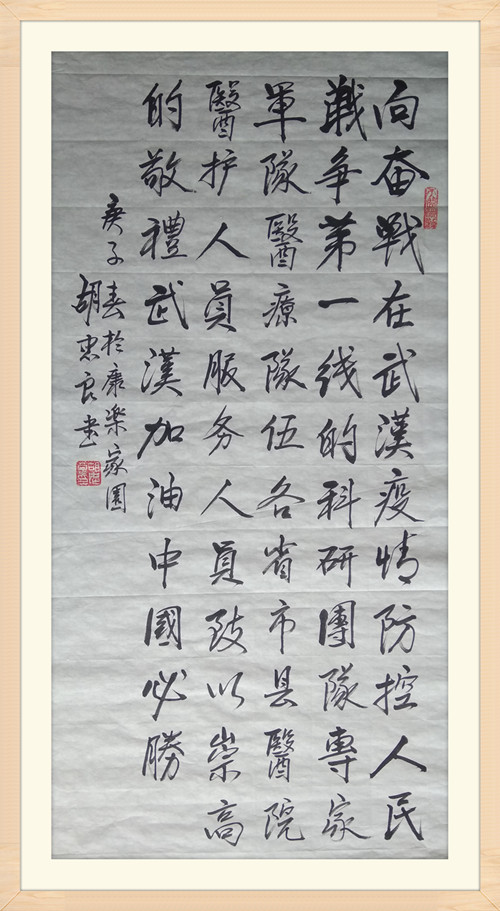 向奋戰在武漢疫情防控人民
戰争第一线的科研團隊專家
軍隊醫療隊伍各省市县醫院
醫护人員服务人員致以崇高
的敬禮武漢加油中國必勝
庚子春於康樂家園
胡忠良书